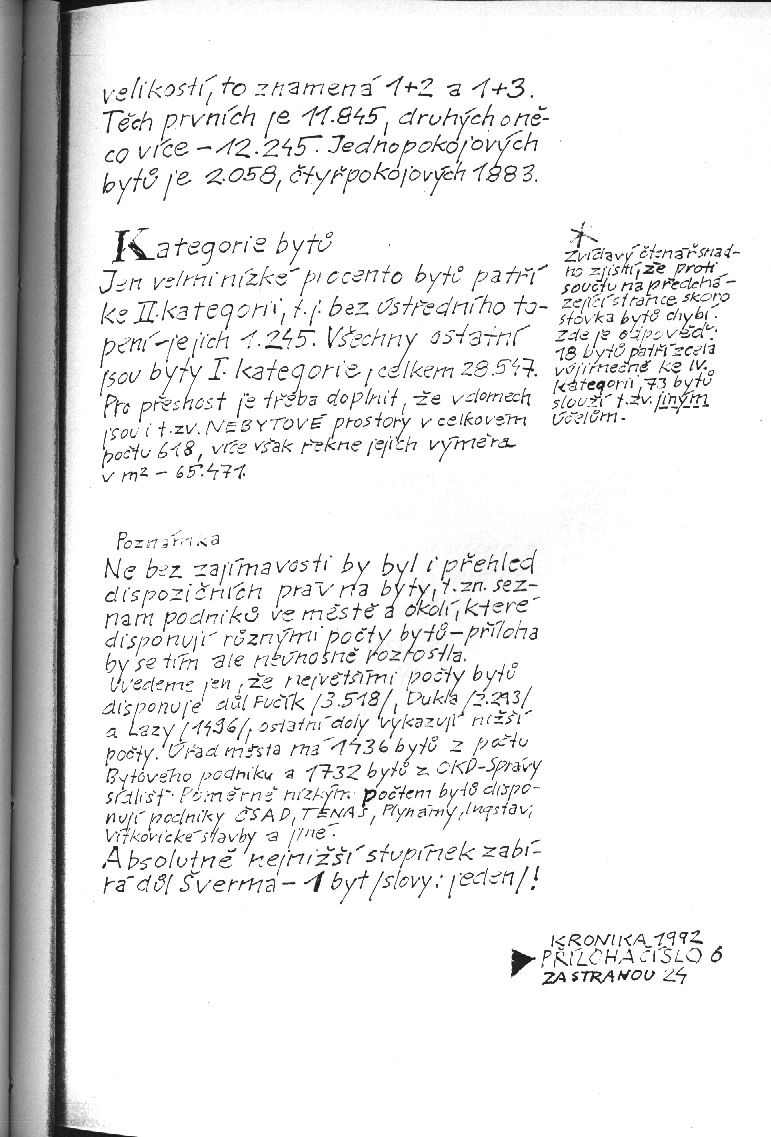 velikostí, to znamená 1+2 a 1+3.
Těch prvních je 11.845, druhých o ně-
co více – 12.245. Jednopokojových
bytů je 2.058, čtyřpokojových 1883.
Kategorie bytů
Jen velmi nízké procento bytů patří
ke II. kategorii, t.j. bez ústředního to-
pení – jejich 1.245. Všechny ostatní
jsou byty I. kategorie, celkem 28.547.
Pro přesnost je třeba doplnit, že v domech
jsou i t.zv. NEBYTOVÉ prostory v celkovém
počtu 618, více však řekne jejich výměra
v m² – 65.471.
*
Zvídavý čtenář snad-
no zjistí, že proti
součtu na předchá-
zející stránce skoro
stovka bytů chybí.
Zde je odpověď:
18 bytů patří zcela
výjimečně ke IV.
kategorii, 73 bytů
slouží t.zv. jiným
účelům.
Poznámka
Ne bez zajímavosti by byl i přehled
dispozičních práv na byty, t.zn. sez-
nam podniků ve městě a okolí, které
disponují různými počty bytů – příloha
by se tím ale neúnosně rozrostla.
Uvedeme jen, že největšími počty bytů
disponuje důl Fučík /3.518/, Dukla /2.293/
a Lazy /1496/, ostatní doly vykazují nižší
počty. Úřad města má 1436 bytů z počtu
Bytového podniku a 1732 bytů z OKD-Správy
sídlišť. Poměrně nízkým počtem bytů dispo-
nují podniky ČSAD, TENAS, Plynárny, Ingstav,
Vítkovické stavby a jiné.
Absolutně nejnižší stupínek zabí-
rá důl Šverma – 1 byt /slovy: jeden/!
KRONIKA 1992
PŘÍLOHA ČÍSLO 6
ZA STRANOU 24